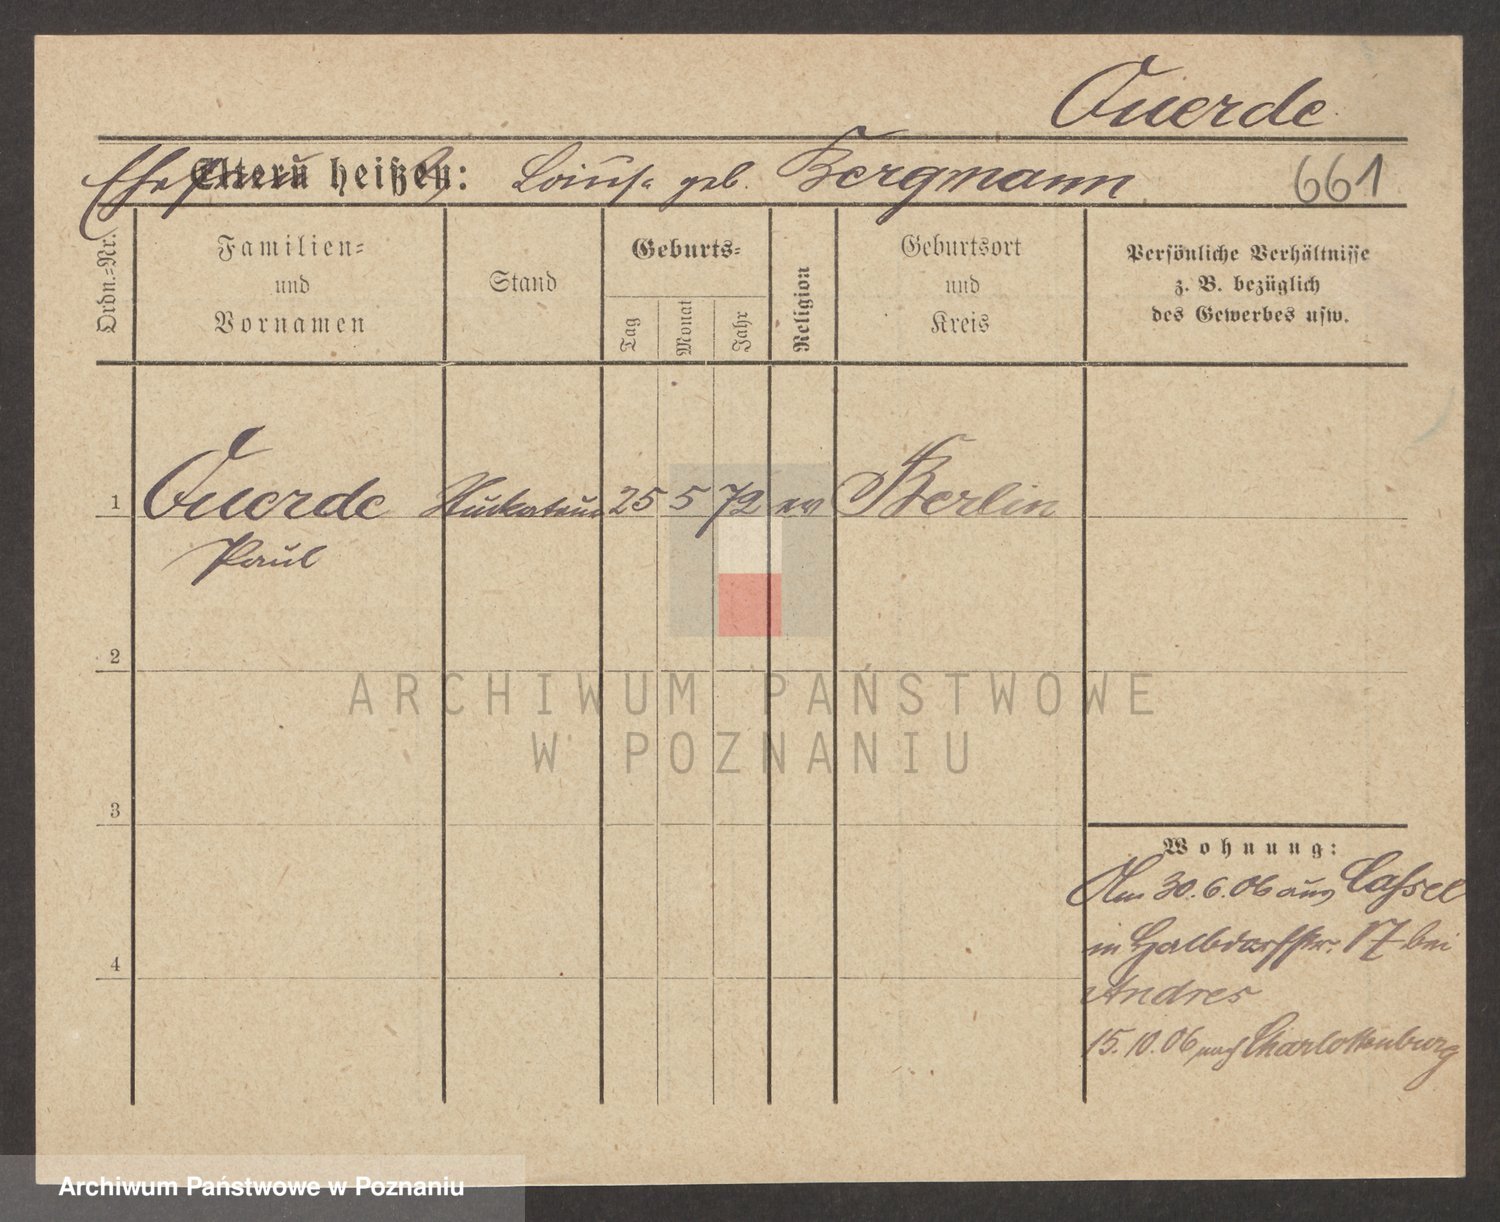 Querde
Eltern heißen: Louise geb. Bergmann
661
Ordn.=Nr.
Familien=
und
Vornamen
Stand
Geburts=
Tag
Monat
Jahr
Religion
Geburtsort
und
Kreis
Persönliche Verhältnisse
z. B. bezüglich
des Gewerbes usw.
1 Querde Stuckateur 25 5 72 ev Berlin
Paul
2
3
4
Wohnung:
Am 30.6.06 aus Cassel
in Halbdorfstr. 17 bei
Andres
15.10.06 nach Charlottenburg
ARCHIWUM PAŃSTWOWE
W POZNANIU
Archiwum Państwowe w Poznaniu